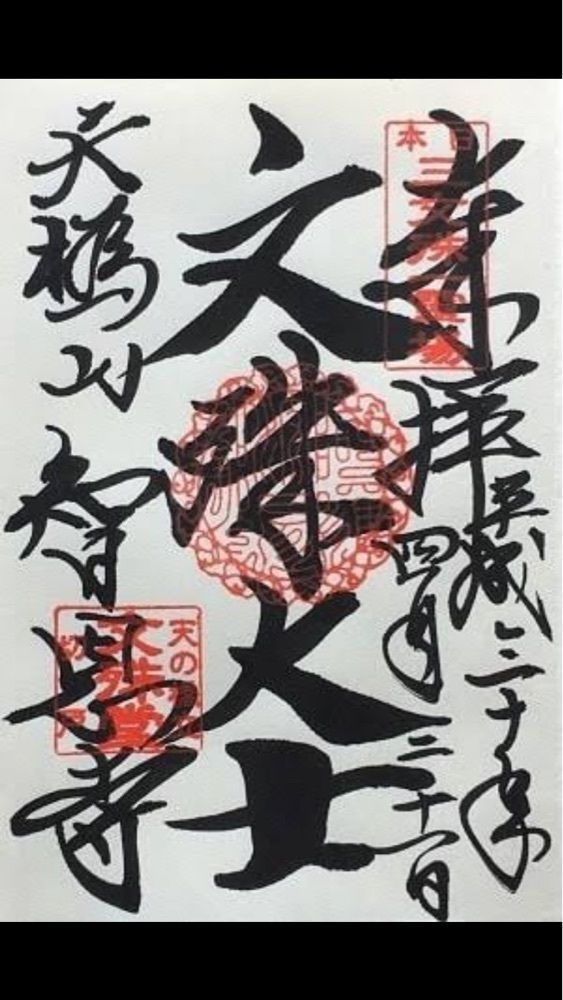 奉拝
平成三十年
四月二十一日
文殊大士
天橋山
智恩寺
日本
三文殊霊場
天の橋立
文殊堂
切戸